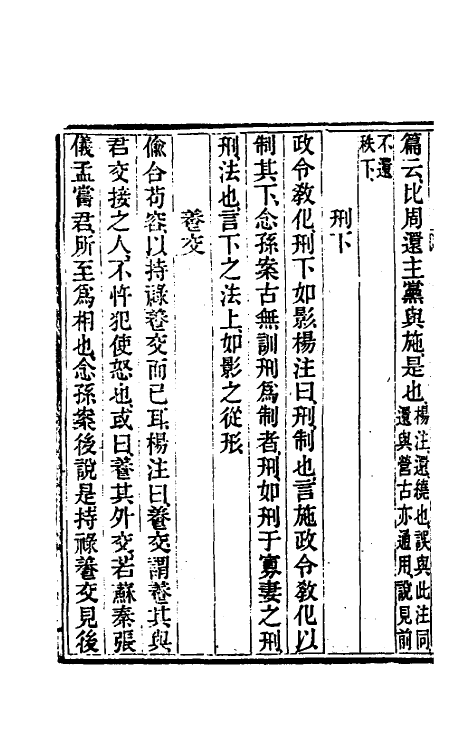 篇云比周還主黨與施是也楊注還繞也誤與此注同還與營古亦通用說見前
不還
秩下
刑下
政令教化刑下如影楊注曰刑制也言施政令教化以
制其下念孫案古無訓刑爲制者刑如刑于寡妻之刑
刑法也言下之法上如影之從形
養交
偸合苟容以持祿養交而已耳楊注曰養交謂養其與
君交接之人不忤犯使怒也或曰養其外交若蘇秦張
儀孟嘗君所至爲相也念孫案後說是持祿養交見後